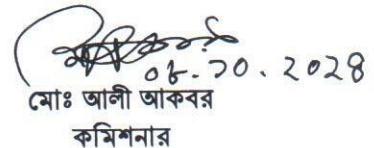 ০৮.১০.২০২৪
মোঃ আলী আকবর
কমিশনার